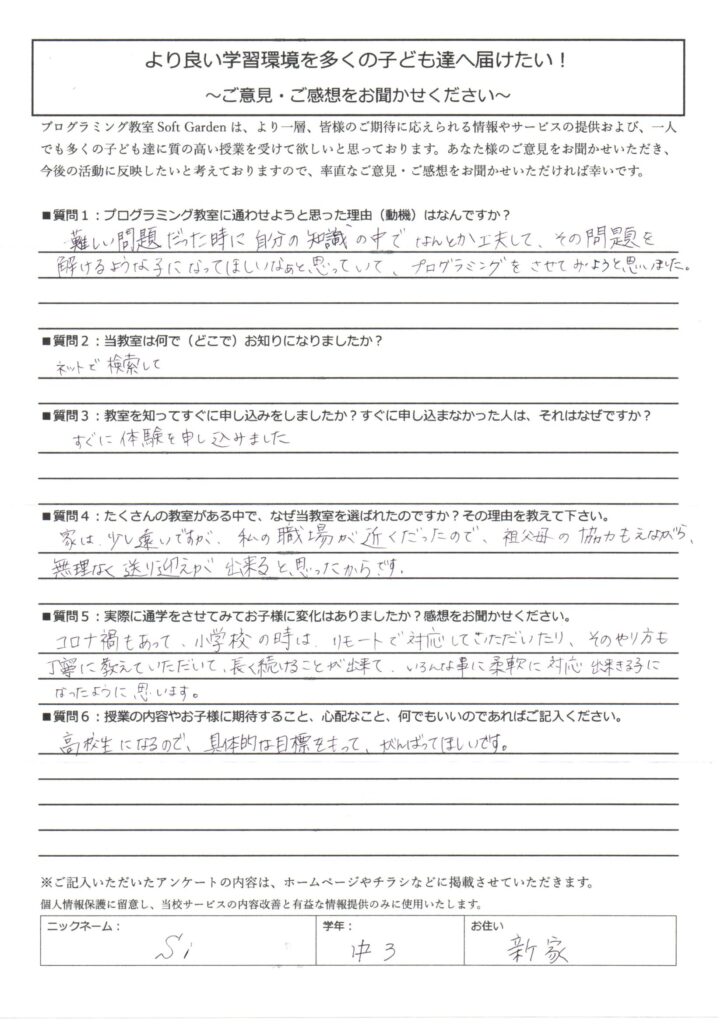 より良い学習環境を多くの子ども達へ届けたい！
～ご意見・ご感想をお聞かせください～
プログラミング教室 Soft Garden は、より一層、皆様のご期待に応えられる情報やサービスの提供および、一人
でも多くの子ども達に質の高い授業を受けて欲しいと思っております。あなた様のご意見をお聞かせいただき、
今後の活動に反映したいと考えておりますので、率直なご意見・ご感想をお聞かせいただければ幸いです。
■質問１：プログラミング教室に通わせようと思った理由（動機）はなんですか？
難しい問題だった時に自分の知識の中でなんとか工夫して、その問題を
解けるような子になってほしいなぁと思っていて、プログラミングをさせてみようと思いました。
■質問２：当教室は何で（どこで）お知りになりましたか？
ネットで検索して
■質問３：教室を知ってすぐに申し込みをしましたか？すぐに申し込まなかった人は、それはなぜですか？
すぐに体験を申し込みました
■質問４：たくさんの教室がある中で、なぜ当教室を選ばれたのですか？その理由を教えて下さい。
家は、少し遠いですが、私の職場が近くだったので、祖父母の協力もえながら、
無理なく送り迎えが出来ると思ったからです。
■質問５：実際に通学をさせてみてお子様に変化はありましたか？感想をお聞かせください。
コロナ禍もあって、小学校の時は、リモートで対応していただいたり、そのやり方も
丁寧に教えていただいて、長く続けることが出来て、いろんな事に柔軟に対応出来きる子に
なったように思います。
■質問６：授業の内容やお子様に期待すること、心配なこと、何でもいいのであればご記入ください。
高校生になるので、具体的な目標をもって、がんばってほしいです。
※ご記入いただいたアンケートの内容は、ホームページやチラシなどに掲載させていただきます。
個人情報保護に留意し、当校サービスの内容改善と有益な情報提供のみに使用いたします。
ニックネーム： 学年： お住い
Si 中3 新家